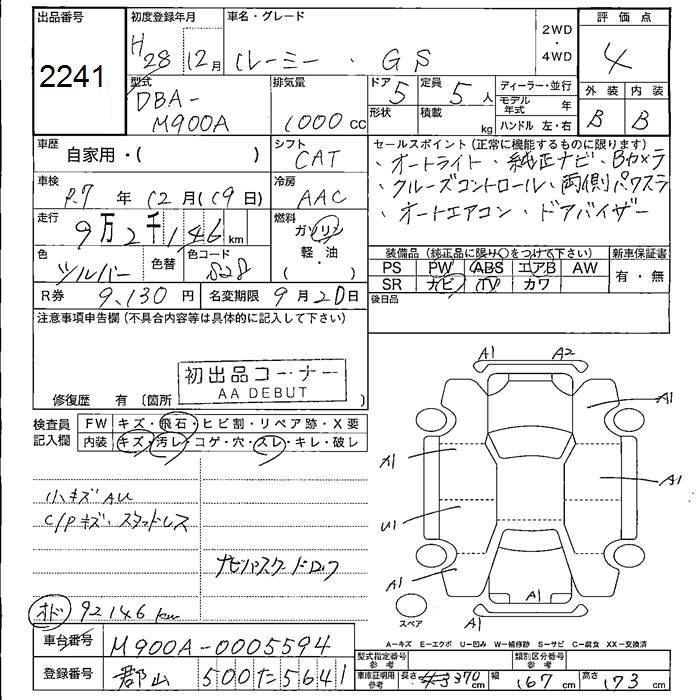 出品番号 初度登録年月 車名・グレード 2WD ・ 4WD 評価点
2241 H28 12月 ルーミー ・ GS 4
型式 排気量 ドア 5 定員 5人 ディーラー・並行 外装 内装
DBA-M900A 1000cc 形状 積載 kg モデル年式 年 B B
ハンドル 左・右
車歴 自家用・( ) シフト CAT セールスポイント (正常に機能するものに限ります)
・オートライト ・純正ナビ・Bカメラ
車検 R.7年 12月(19日) 冷房 AAC ・クルーズコントロール・両側パワスラ
走行 9万2千146km 燃料 ガソリン ・オートエアコン ・ドアバイザー
軽・油 ( ・ )
色 シルバー 色替 色コード S28 装備品 (純正品に限り○をつけて下さい) 新車保証書
PS PW ABS エアB AW 有・無
SR ナビ TV カワ
R券 9,130円 名変期限 9月20日 後日品
注意事項申告欄 (不具合内容等は具体的に記入して下さい)
初出品コーナー
AA DEBUT
修復歴 有 〔箇所
検査員記入欄 FW キズ・飛石・ヒビ割・リペア跡・X要
内装 キズ・汚レ・コゲ・穴・スレ・キレ・破レ
A1 A2
A1
A1 A1
U1
A1 A1
A1
スペア
小キズAU
C/Pキズ・スタッドレス
ナビパスワードロック
オド 92146km
A-キズ E-エクボ U-凹み W-補修跡 S-サビ C-腐食 XX-交換済
車台番号 M900A-0005594 型式指定番号 参考 類別区分番号 参考
登録番号 郡山 500 た 5641 車庫証明用 参考 長さ 370cm 幅 167cm 高さ 173cm